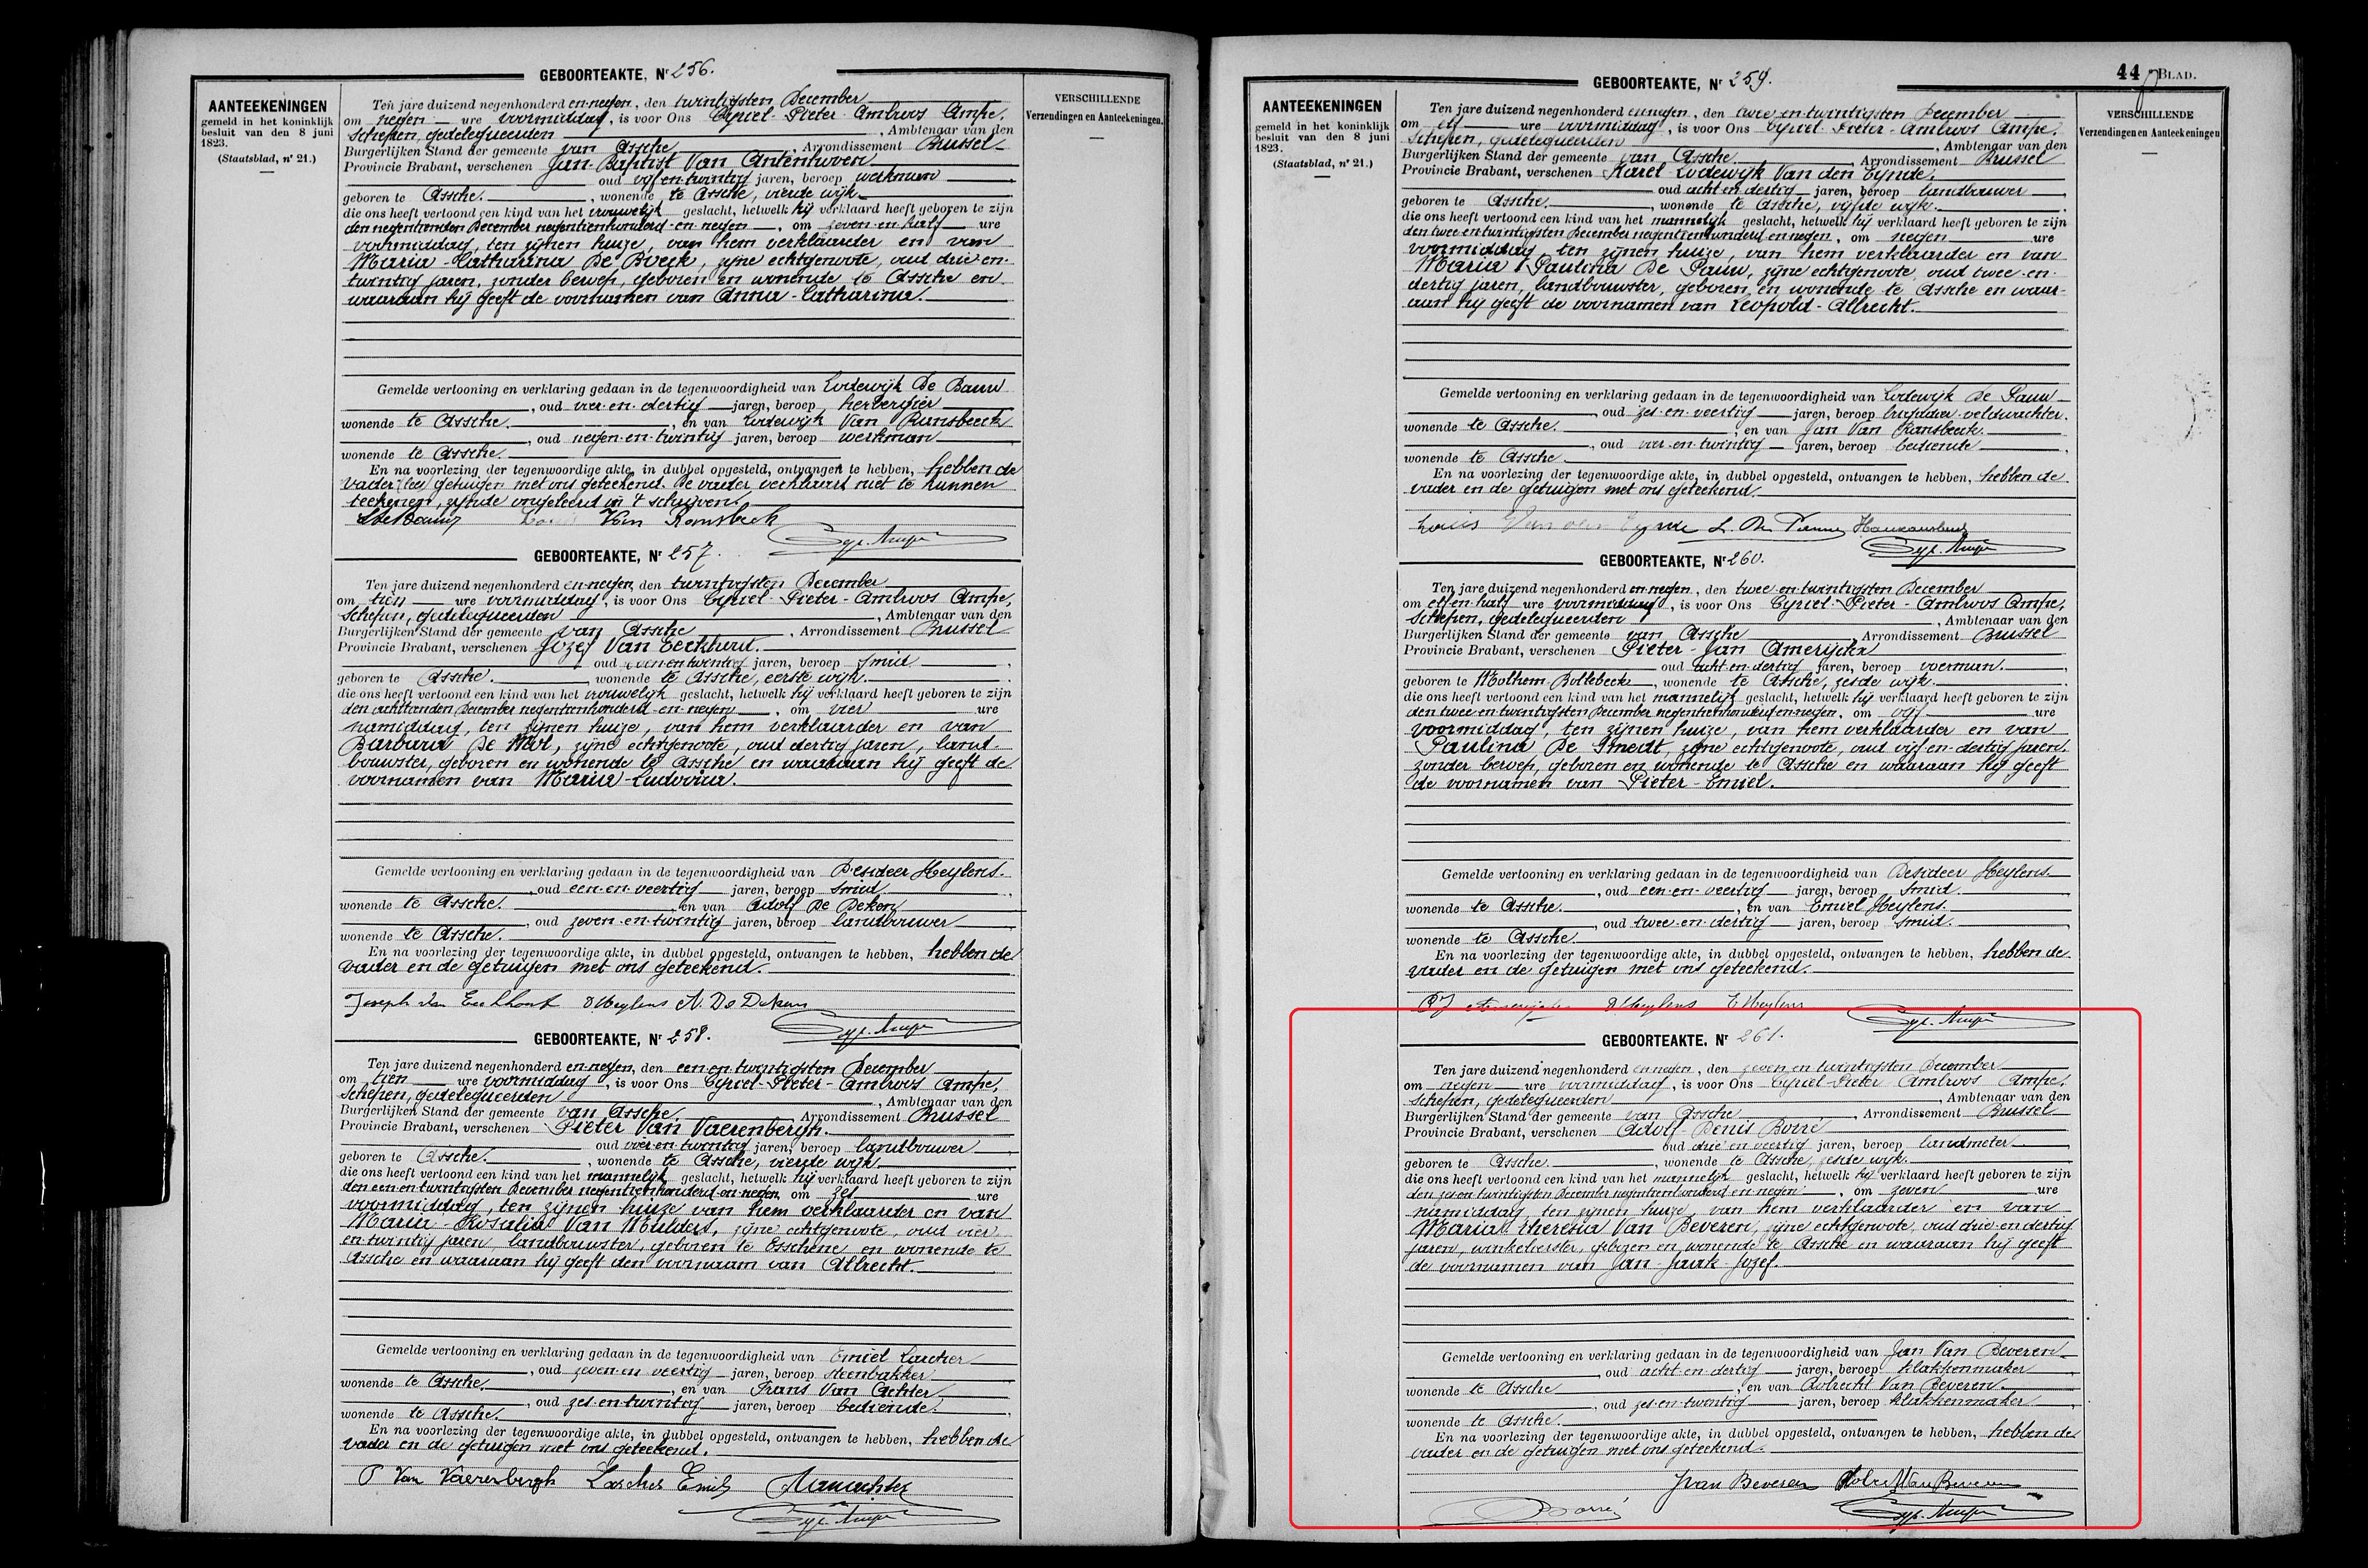 GEBOORTEAKTE, Nr 256.
AANTEEKENINGEN
gemeld in het koninklijk
besluit van den 8 juni
1823.
(Staatsblad, nr 21.)
VERSCHILLENDE
Verzendingen en Aanteekeningen.
Ten jare duizend negenhonderd en negen, den twintigsten December
om negen ure voormiddag, is voor Ons Cyriel-Pieter-Ambroos Ampe,
Schepen, gedelegueerden, Ambtenaar van den
Burgerlijken Stand der gemeente van Assche, Arrondissement Brussel
Provincie Brabant, verschenen Jan-Baptist Van
oud vijf en twintig jaren, beroep werkman
geboren te Assche., wonende te Assche, vierde wijk
die ons heeft vertoond een kind van het vrouwelijk geslacht, hetwelk hij verklaard heeft geboren te zijn
den negentienden December negentienhonderd en negen, om zeven en half ure
voormiddag, ten zijnen huize, van hem verklaarder en van
Maria-Catharina De Boeck, zijne echtgenoote, oud drie en
twintig jaren, zonder beroep, geboren en wonende te Assche en
waaraan hij geeft de voornamen van Anna-Catharina.
Gemelde vertooning en verklaring gedaan in de tegenwoordigheid van Lodewijk De Bauw
, oud vier en dertig jaren, beroep herbergier
wonende te Assche., en van Lodewijk Van Ransbeeck
, oud negen en twintig jaren, beroep werkman
wonende te Assche.
En na voorlezing der tegenwoordige akte, in dubbel opgesteld, ontvangen te hebben, hebben de
getuigen met ons geteekend. De vader verklaart niet te kunnen
teekenen, zijnde ongeleerd in 't schrijven.
Van Ransbeek
Cyr. Ampe
GEBOORTEAKTE, Nr 257.
Ten jare duizend negenhonderd en negen, den twintigsten December
om tien ure voormiddag, is voor Ons Cyriel-Pieter-Ambroos Ampe,
Schepen, gedelegueerden, Ambtenaar van den
Burgerlijken Stand der gemeente van Assche, Arrondissement Brussel
Provincie Brabant, verschenen Jozef Van Eeckhout.
oud en twintig jaren, beroep smid
geboren te Assche., wonende te Assche, eerste wijk.
die ons heeft vertoond een kind van het vrouwelijk geslacht, hetwelk hij verklaard heeft geboren te zijn
den achttienden December negentienhonderd en negen, om vier ure
namiddag, ten zijnen huize, van hem verklaarder en van
Barbara De Mol, zijne echtgenoote, oud dertig jaren, land-
bouwster, geboren en wonende te Assche en waaraan hij geeft de
voornamen van Maria-Ludovica.
Gemelde vertooning en verklaring gedaan in de tegenwoordigheid van Desideer Heylens.
, oud een en veertig jaren, beroep smid
wonende te Assche., en van Adolf De Deken
, oud zeven en twintig jaren, beroep landbouwer
wonende te Assche.
En na voorlezing der tegenwoordige akte, in dubbel opgesteld, ontvangen te hebben, hebben de
vader en de getuigen met ons geteekend.
Joseph Van Eeckhout D Heylens A. De Deken
Cyr. Ampe
GEBOORTEAKTE, Nr 258.
Ten jare duizend negenhonderd en negen, den een en twintigsten December
om tien ure voormiddag, is voor Ons Cyriel-Pieter-Ambroos Ampe,
Schepen, gedelegueerden, Ambtenaar van den
Burgerlijken Stand der gemeente van Assche., Arrondissement Brussel
Provincie Brabant, verschenen Pieter Van Vaerenbergh.
oud vier en twintig jaren, beroep landbouwer
geboren te Assche., wonende te Assche, vierde wijk
die ons heeft vertoond een kind van het mannelijk geslacht, hetwelk hij verklaard heeft geboren te zijn
den een en twintigsten December negentienhonderd en negen, om zes ure
voormiddag, ten zijnen huize van hem verklaarder en van
Maria-Rosalia Van Mulders, zijne echtgenoote, oud vier
en twintig jaren, landbouwster, geboren te Esschene en wonende te
Assche en waaraan hij geeft den voornaam van Albrecht.
Gemelde vertooning en verklaring gedaan in de tegenwoordigheid van Emiel Larcher
, oud zeven en veertig jaren, beroep steenbakker
wonende te Assche., en van Frans Van Achter
, oud zes en twintig jaren, beroep bediende.
wonende te Assche.
En na voorlezing der tegenwoordige akte, in dubbel opgesteld, ontvangen te hebben, hebben de
vader en de getuigen met ons geteekend.
P Van Vaerenbergh Larcher Emiel
Cyr. Ampe
44e BLAD.
GEBOORTEAKTE, Nr 259.
AANTEEKENINGEN
gemeld in het koninklijk
besluit van den 8 juni
1823.
(Staatsblad, nr 21.)
VERSCHILLENDE
Verzendingen en Aanteekeningen
Ten jare duizend negenhonderd en negen, den twee en twintigsten December
om elf ure voormiddag, is voor Ons Cyriel-Pieter-Ambroos Ampe,
Schepen, gedelegueerden, Ambtenaar van den
Burgerlijken Stand der gemeente van Assche, Arrondissement Brussel
Provincie Brabant, verschenen Karel-Lodewijk Van den Eynde.
oud acht en dertig jaren, beroep landbouwer
geboren te Assche., wonende te Assche, vijfde wijk.
die ons heeft vertoond een kind van het mannelijk geslacht, hetwelk hij verklaard heeft geboren te zijn
den twee en twintigsten December negentienhonderd en negen, om negen ure
voormiddag, ten zijnen huize, van hem verklaarder en van
Maria Paulina De Pauw, zijne echtgenoote, oud twee en
dertig jaren, landbouwster, geboren en wonende te Assche en waar-
aan hij geeft de voornamen van Leopold-Albrecht.
Gemelde vertooning en verklaring gedaan in de tegenwoordigheid van Lodewijk De Pauw
, oud zes en veertig jaren, beroep brigadier-veldwachter.
wonende te Assche., en van Jan Van Ransbeeck.
, oud vier en twintig jaren, beroep bediende
wonende te Assche
En na voorlezing der tegenwoordige akte, in dubbel opgesteld, ontvangen te hebben, hebben de
vader en de getuigen met ons geteekend.
Louis Van den Eynde L. De Pauw
Cyr. Ampe
GEBOORTEAKTE, Nr 260.
Ten jare duizend negenhonderd en negen, den twee en twintigsten December
om elf en half ure voormiddag, is voor Ons Cyriel-Pieter-Ambroos Ampe,
Schepen, gedelegueerden, Ambtenaar van den
Burgerlijken Stand der gemeente van Assche, Arrondissement Brussel
Provincie Brabant, verschenen Pieter-Jan Amerijckx
oud acht en dertig jaren, beroep voerman.
geboren te Molhem-Bollebeek, wonende te Assche, zesde wijk.
die ons heeft vertoond een kind van het mannelijk geslacht, hetwelk hij verklaard heeft geboren te zijn
den twee en twintigsten December negentienhonderd en negen, om vijf ure
voormiddag, ten zijnen huize, van hem verklaarder en van
Paulina De Smedt, zijne echtgenoote, oud vijf en dertig jaren
zonder beroep, geboren en wonende te Assche en waaraan hij geeft
de voornamen van Pieter-Emiel.
Gemelde vertooning en verklaring gedaan in de tegenwoordigheid van Desideer Heylens.
, oud een en veertig jaren, beroep smid.
wonende te Assche., en van Emiel Heylens.
, oud twee en dertig jaren, beroep smid.
wonende te Assche.
En na voorlezing der tegenwoordige akte, in dubbel opgesteld, ontvangen te hebben, hebben de
vader en de getuigen met ons geteekend.
D. Heylens E Heylens
Cyr. Ampe
GEBOORTEAKTE, Nr 261.
Ten jare duizend negenhonderd en negen, den zeven en twintigsten December
om negen ure voormiddag, is voor Ons Cyriel-Pieter Ambroos Ampe,
Schepen, gedelegueerden, Ambtenaar van den
Burgerlijken Stand der gemeente van Assche, Arrondissement Brussel
Provincie Brabant, verschenen Adolf-Denis Borré
oud drie en veertig jaren, beroep landmeter
geboren te Assche., wonende te Assche, zesde wijk.
die ons heeft vertoond een kind van het mannelijk geslacht, hetwelk hij verklaard heeft geboren te zijn
den zes en twintigsten December negentienhonderd en negen, om zeven ure
namiddag, ten zijnen huize, van hem verklaarder en van
Maria Theresia Van Beveren, zijne echtgenoote, oud drie en dertig
jaren, winkelierster, geboren en wonende te Assche en waaraan hij geeft
de voornamen van Jan-Jaak-Jozef.
Gemelde vertooning en verklaring gedaan in de tegenwoordigheid van Jan Van Beveren
, oud acht en dertig jaren, beroep klakkenmaker
wonende te Assche, en van Robrecht Van Beveren
, oud zes en twintig jaren, beroep klakkenmaker
wonende te Assche.
En na voorlezing der tegenwoordige akte, in dubbel opgesteld, ontvangen te hebben, hebben de
vader en de getuigen met ons geteekend.
J van Beveren Robert Van Beveren
Borré Cyr. Ampe